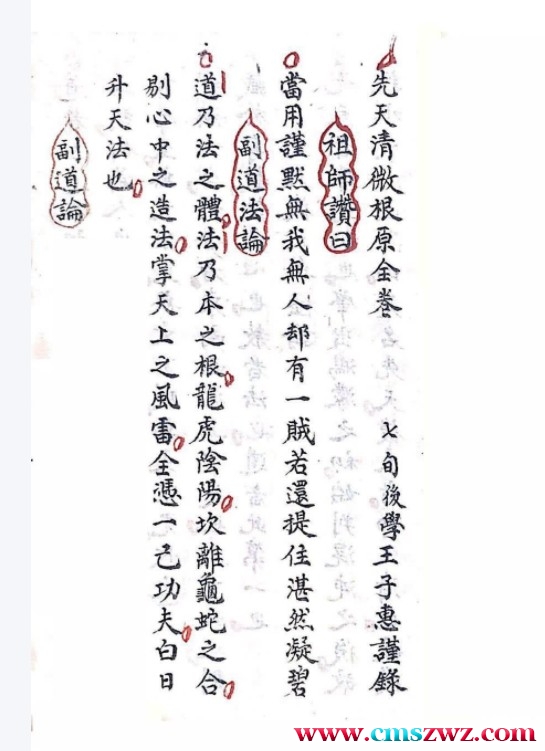 先天清微根原全卷 七旬後學王子惠謹錄
祖師讚曰
當用謹默無我無人却有一賊若還提住湛然凝碧
副道法論
道乃法之體法乃本之根龍虎陰陽坎離龜蛇之合
剔心中之造法掌天上之風雷全憑一己功夫白日
升天法也
副道論
www.cmszwz.com